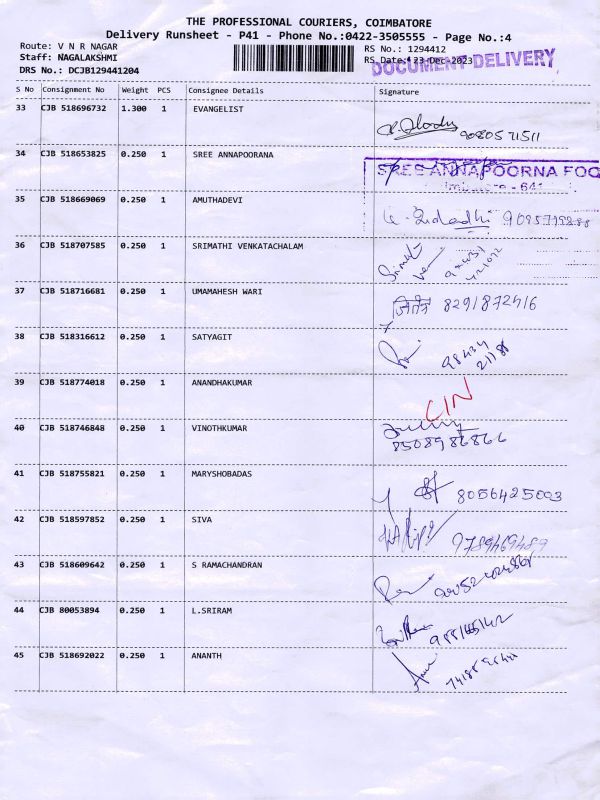 THE PROFESSIONAL COURIERS, COIMBATORE
Delivery Runsheet - P41 - Phone No.:0422-3505555 - Page No.:4
Route: V N R NAGAR
RS No.: 1294412
Staff: NAGALAKSHMI
RS Date: 23-Dec-2023
DOCUMENT DELIVERY
DRS No.: DCJB129441204
S No Consignment No Weight PCS Consignee Details Signature
33 CJB 518696732 1.300 1 EVANGELIST
9080571511
34 CJB 518653825 0.250 1 SREE ANNAPOORANA
SREE ANNAPOORNA FOO
35 CJB 518669069 0.250 1 AMUTHADEVI
36 CJB 518707585 0.250 1 SRIMATHI VENKATACHALAM
37 CJB 518716681 0.250 1 UMAMAHESH WARI
8291872416
38 CJB 518316612 0.250 1 SATYAGIT
39 CJB 518774018 0.250 1 ANANDHAKUMAR
CIN
40 CJB 518746848 0.250 1 VINOTHKUMAR
8508986866
41 CJB 518755821 0.250 1 MARYSHOBADAS
8056425003
42 CJB 518597852 0.250 1 SIVA
9789469489
43 CJB 518609642 0.250 1 S RAMACHANDRAN
44 CJB 80053894 0.250 1 L.SRIRAM
45 CJB 518692022 0.250 1 ANANTH